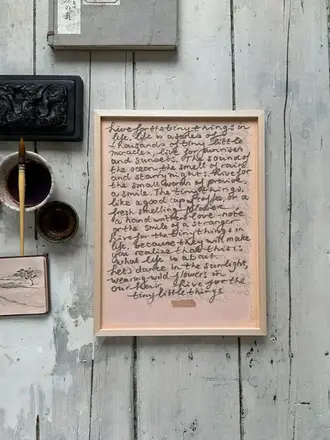 Live for the tiny things in
life. Life is a series of
thousands of tiny little
miracles. Live for sunrises
and sunsets. The sound of
the ocean, the smell of rain
and starry nights. Live for
the small words of praise
a smile. The tiny things,
like a good cup of coffee, or a
fresh smelling
a hand written love-note
or the smile of a stranger.
Live for the tiny things in
life, because they will make
you realize that this is
what life is about.
Let's dance in the sunlight,
wearing wild flowers in
our hair. Live for the
tiny little things.